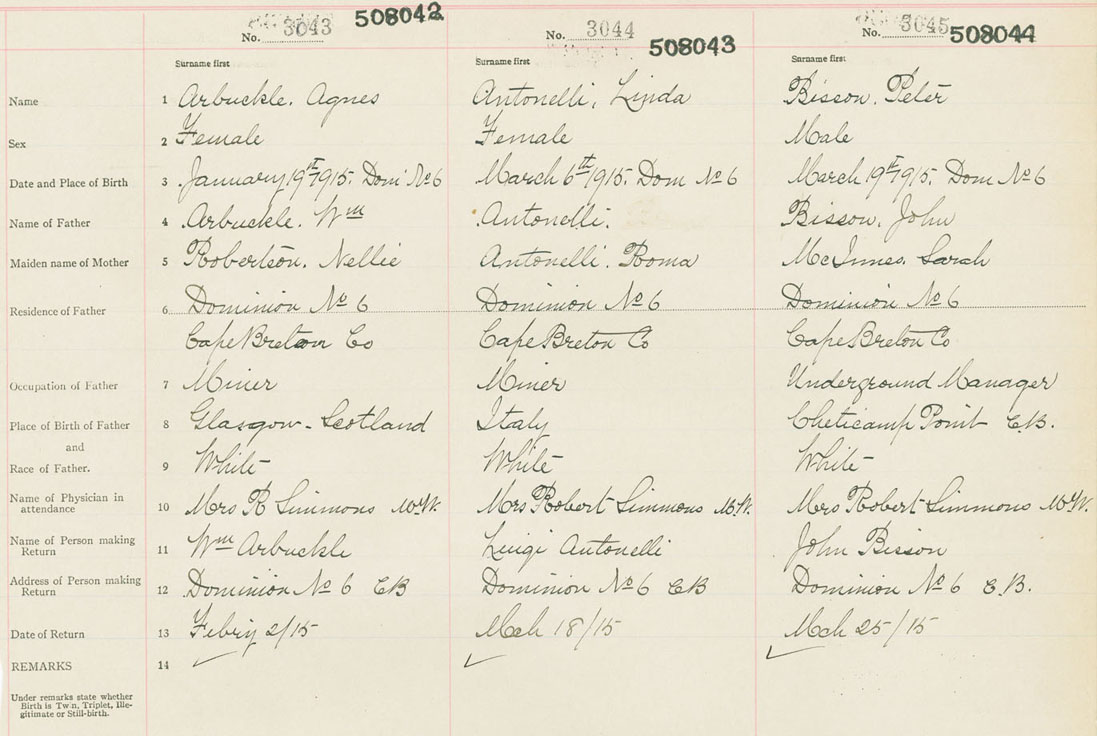 No. 3043 508042 No. 3044 508043 No. 3045 508044
Surname first Surname first Surname first
Name 1 Arbuckle. Agnes Antonelli, Linda Bisson, Peter
Sex 2 Female Female Male
Date and Place of Birth 3 January 19th 1915. Dom No 6 March 6th 1915. Dom No 6 March 19th 1915. Dom No 6
Name of Father 4 Arbuckle. Wm Antonelli. Bisson, John
Maiden name of Mother 5 Robertson. Nellie Antonelli. Roma McInnes, Sarah
Residence of Father 6 Dominion No 6 Dominion No 6 Dominion No 6
Cape Breton Co Cape Breton Co Cape Breton Co
Occupation of Father 7 Miner Miner Underground Manager
Place of Birth of Father 8 Glasgow - Scotland Italy Cheticamp Point C.B.
and
Race of Father. 9 White White White
Name of Physician in
attendance 10 Mrs R Simmons M.W. Mrs Robert Simmons M.W. Mrs Robert Simmons M.W.
Name of Person making
Return 11 Wm Arbuckle Luigi Antonelli John Bisson
Address of Person making
Return 12 Dominion No 6 CB Dominion No 6 CB Dominion No 6 C.B.
Date of Return 13 Febry 2/15 Mch 18/15 Mch 25/15
REMARKS 14
Under remarks state whether
Birth is Twin, Triplet, Ille-
gitimate or Still-birth.